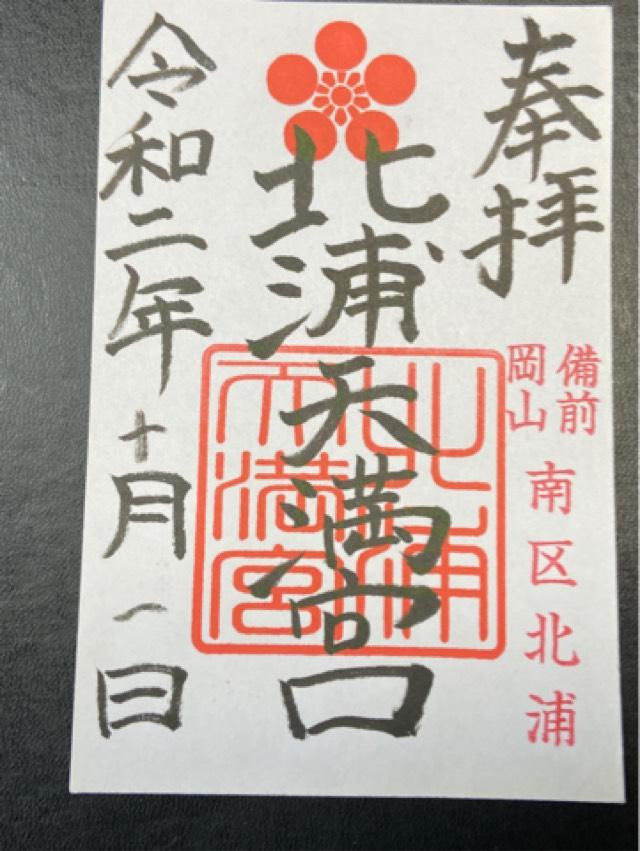 奉拝
備前
岡山
南区北浦
北浦天満宮
北浦
天満宮
令和二年十月一日